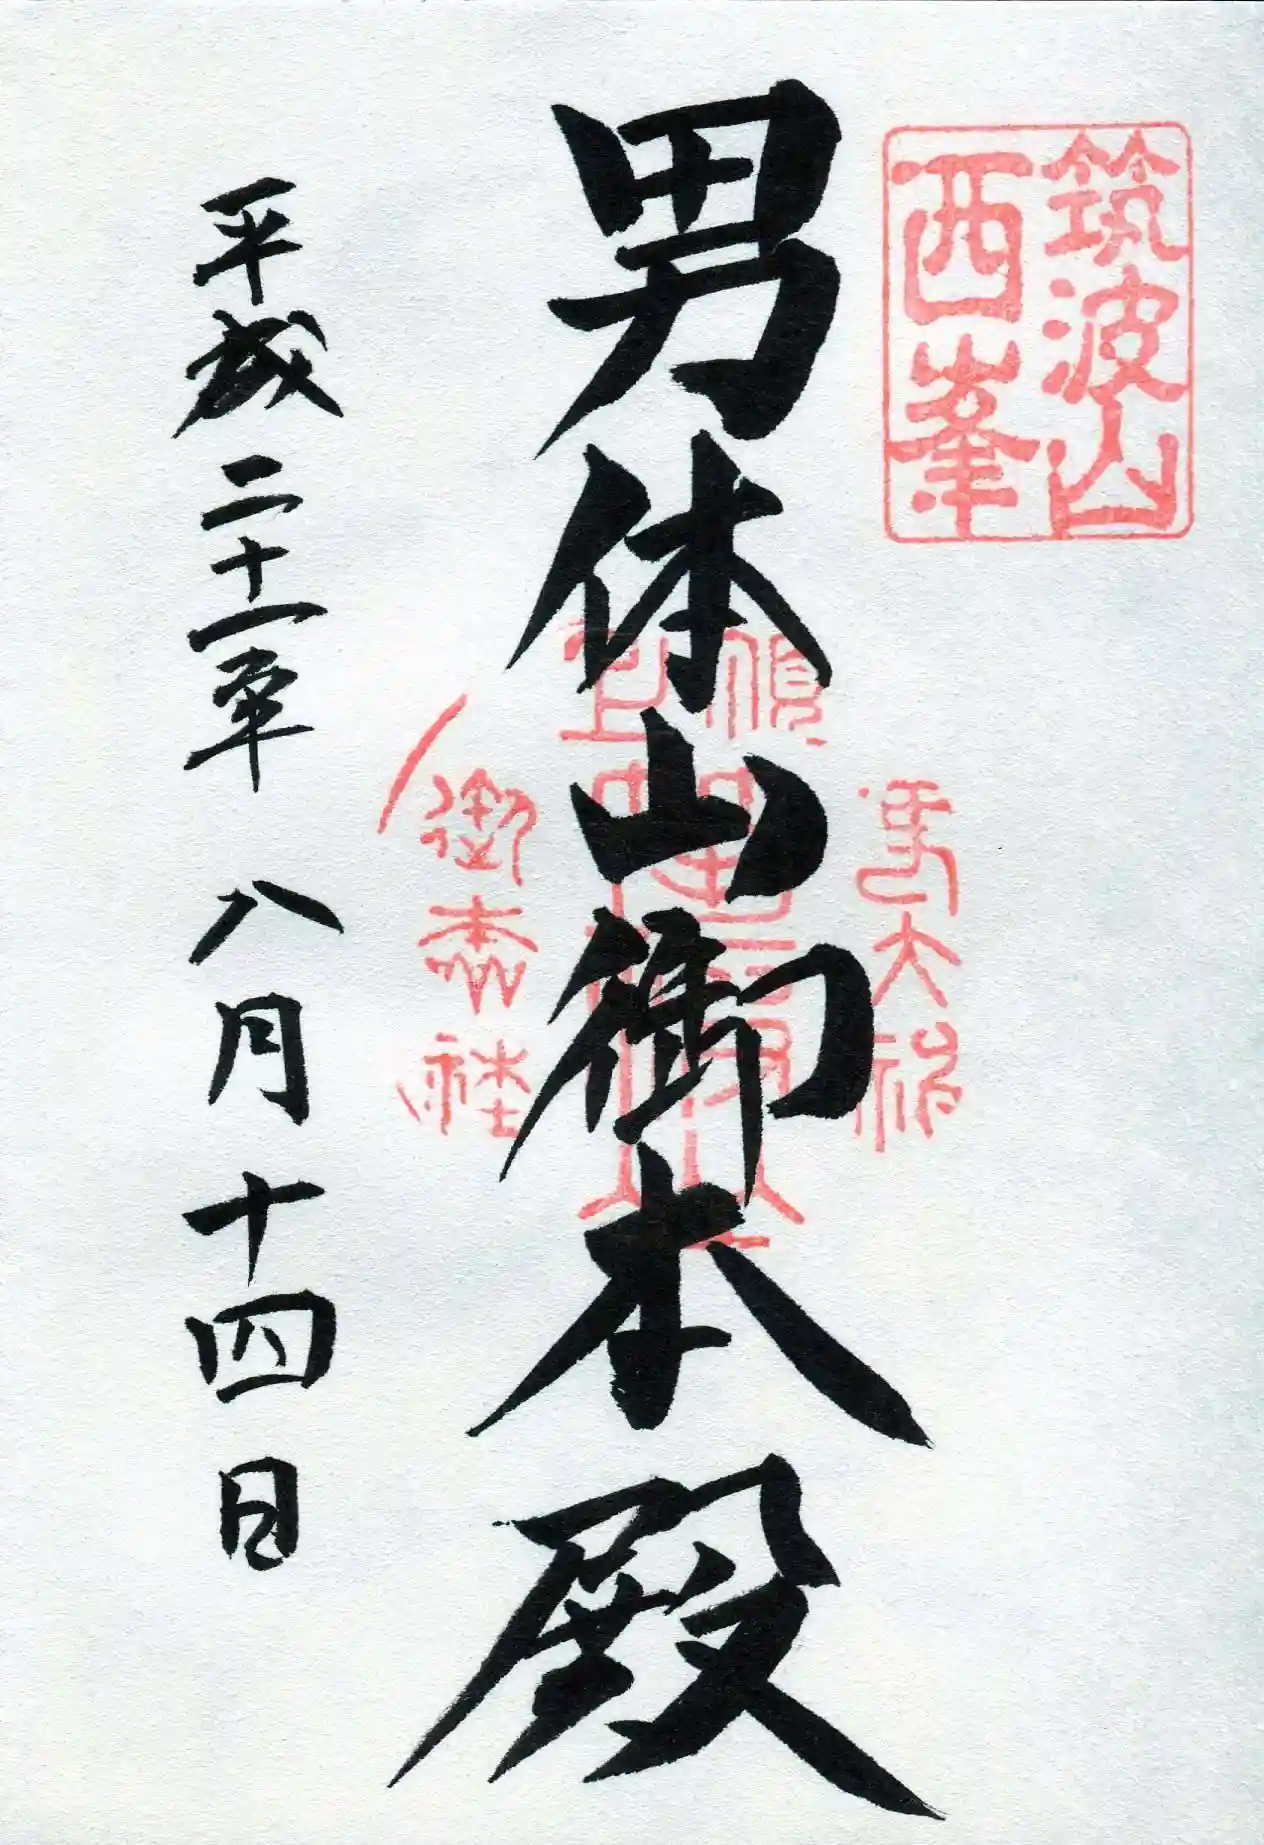 筑波山
西峯
男体山御本殿
平成二十一年 八月十四日